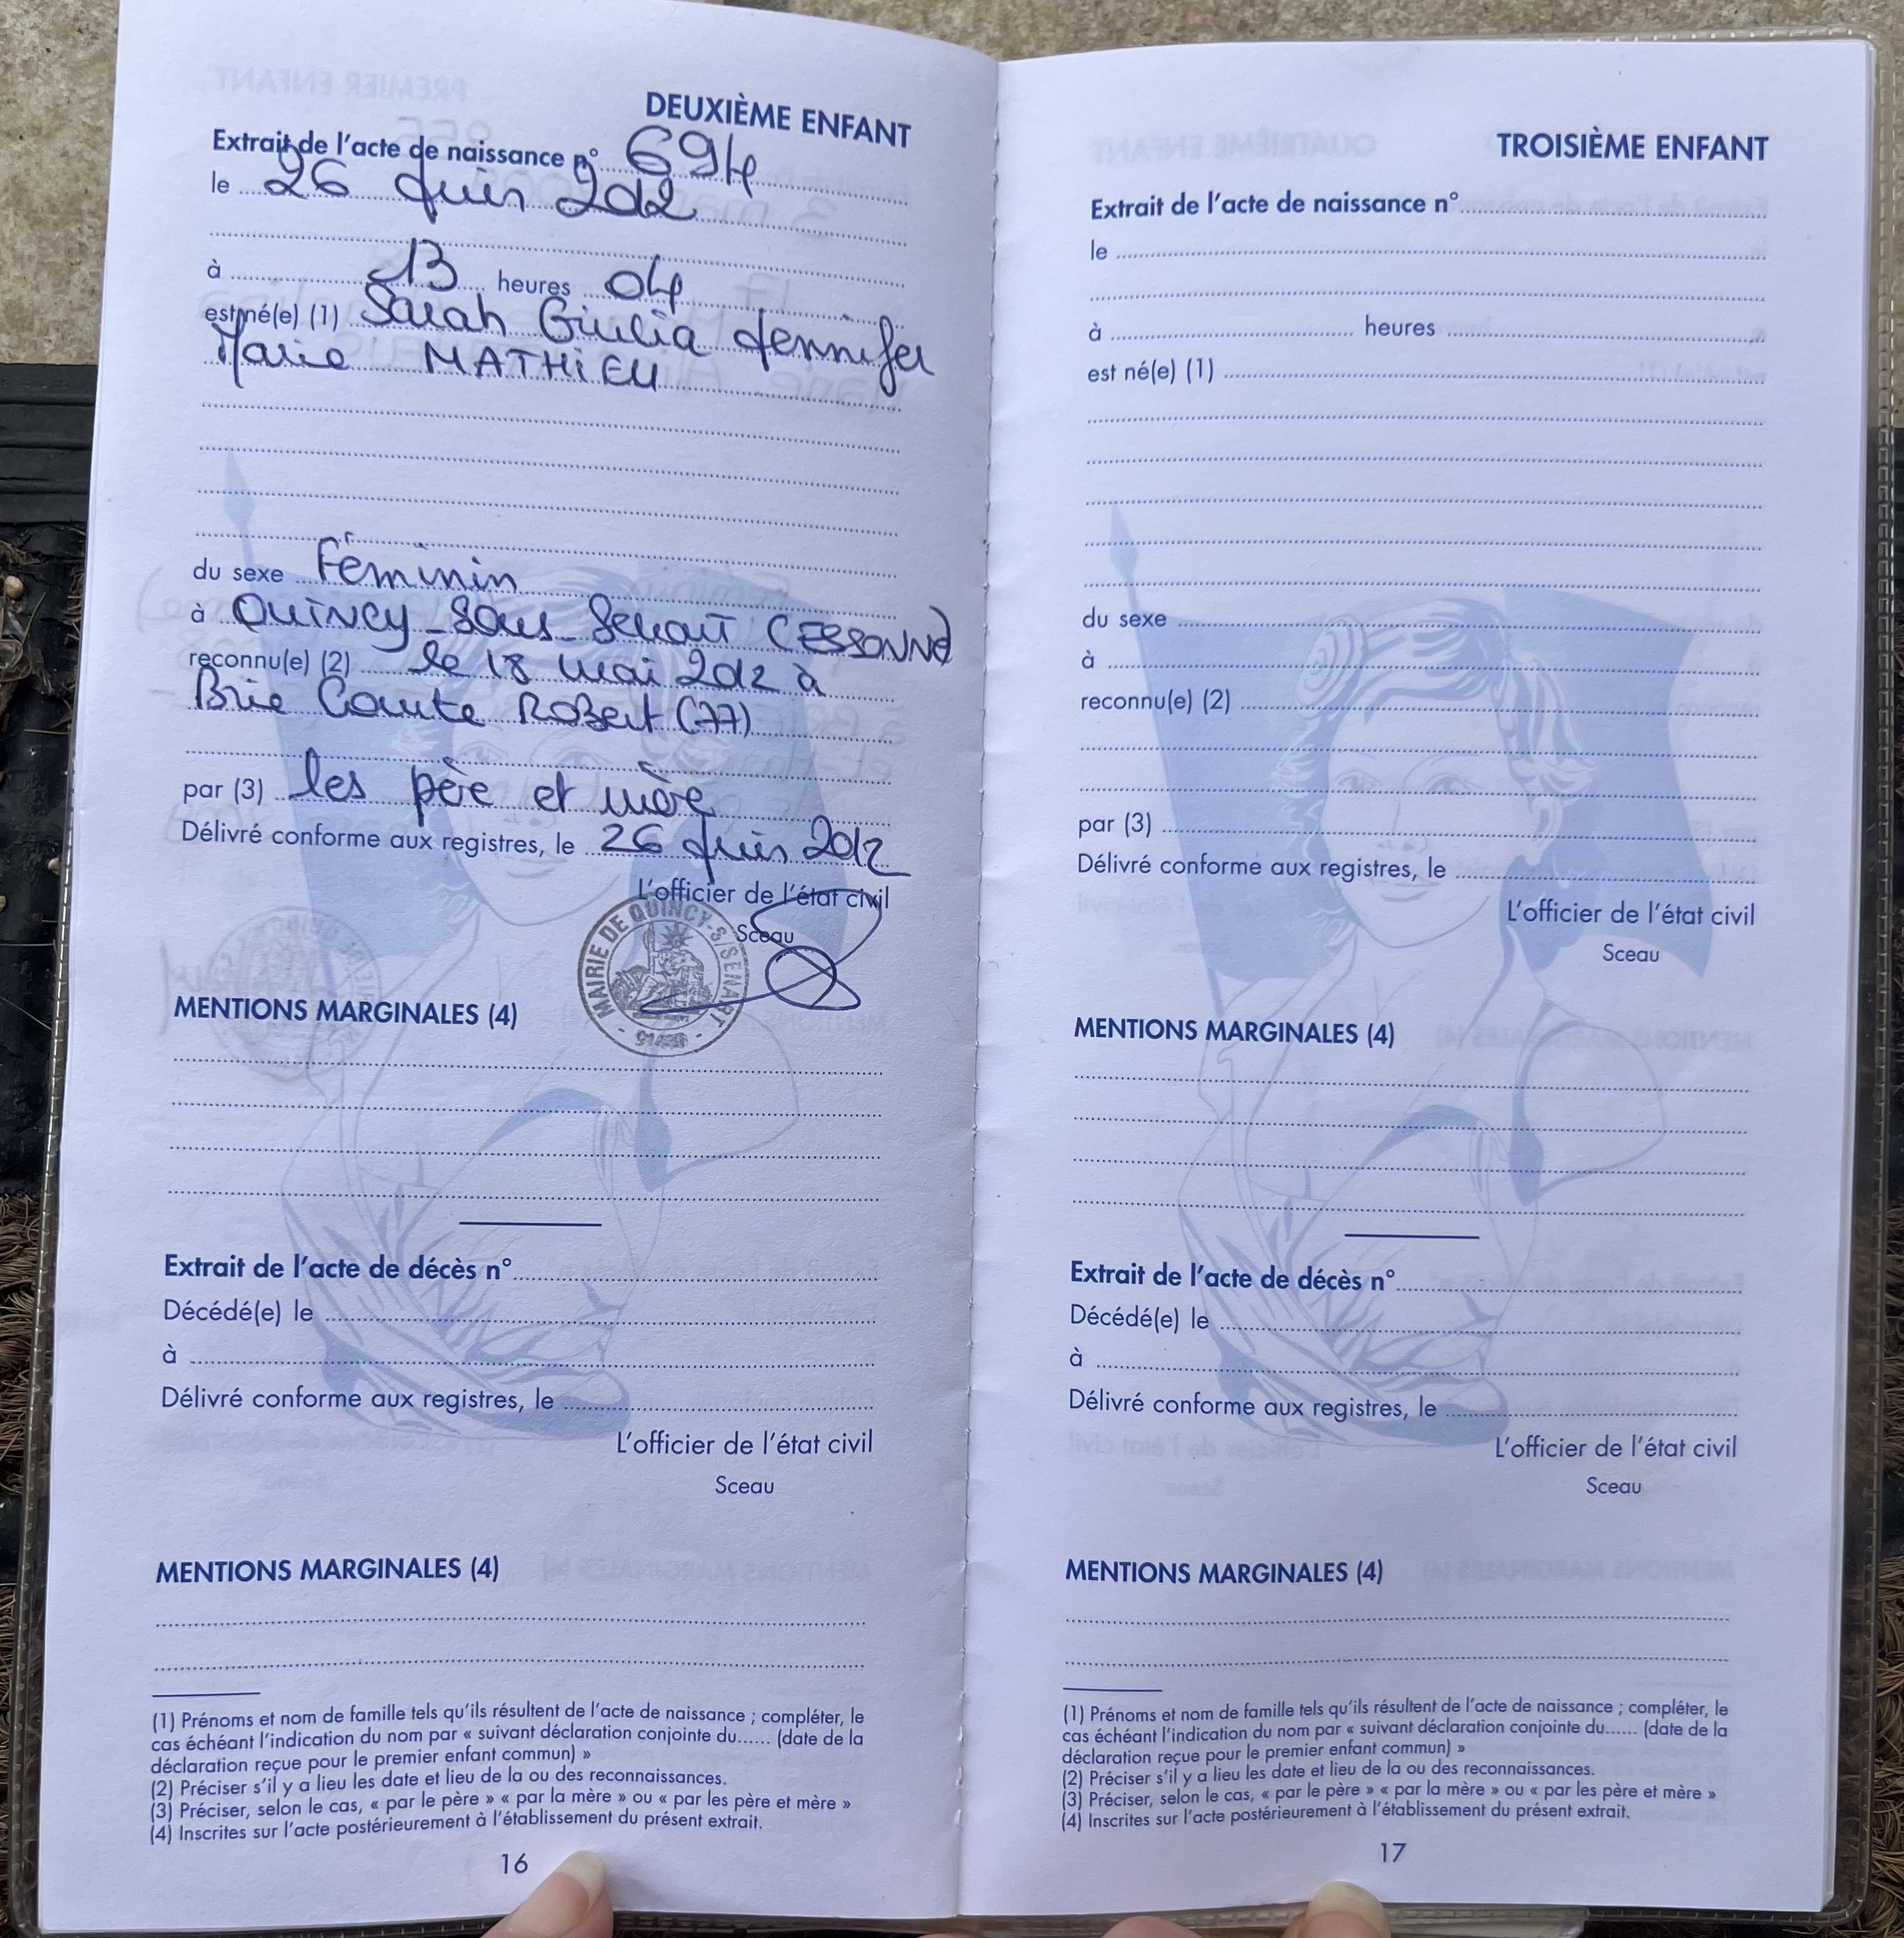 DEUXIÈME ENFANT
Extrait de l'acte de naissance n° 694
le 26 Juin 2012
à 13 heures 04
est né(e) (1) Sarah Giulia Jennifer
Marie MATHiEU
du sexe Féminin
à QUiNCY-Sous-Senart (ESSONNE)
reconnu(e) (2) le 18 mai 2012 à
Brie Comte Robert (77)
par (3) les père et mère
Délivré conforme aux registres, le 26 Juin 2012
L'officier de l'état civil
Sceau
MAIRIE DE QUINCY-S/SENART
MENTIONS MARGINALES (4)
Extrait de l'acte de décès n°
Décédé(e) le
à
Délivré conforme aux registres, le
L'officier de l'état civil
Sceau
MENTIONS MARGINALES (4)
(1) Prénoms et nom de famille tels qu'ils résultent de l'acte de naissance ; compléter, le
cas échéant l'indication du nom par « suivant déclaration conjointe du...... (date de la
déclaration reçue pour le premier enfant commun) »
(2) Préciser s'il y a lieu les date et lieu de la ou des reconnaissances.
(3) Préciser, selon le cas, « par le père » « par la mère » ou « par les père et mère »
(4) Inscrites sur l'acte postérieurement à l'établissement du présent extrait.
16
TROISIÈME ENFANT
Extrait de l'acte de naissance n°
le
à heures
est né(e) (1)
du sexe
à
reconnu(e) (2)
par (3)
Délivré conforme aux registres, le
L'officier de l'état civil
Sceau
MENTIONS MARGINALES (4)
Extrait de l'acte de décès n°
Décédé(e) le
à
Délivré conforme aux registres, le
L'officier de l'état civil
Sceau
MENTIONS MARGINALES (4)
(1) Prénoms et nom de famille tels qu'ils résultent de l'acte de naissance ; compléter, le
cas échéant l'indication du nom par « suivant déclaration conjointe du...... (date de la
déclaration reçue pour le premier enfant commun) »
(2) Préciser s'il y a lieu les date et lieu de la ou des reconnaissances.
(3) Préciser, selon le cas, « par le père » « par la mère » ou « par les père et mère »
(4) Inscrites sur l'acte postérieurement à l'établissement du présent extrait.
17